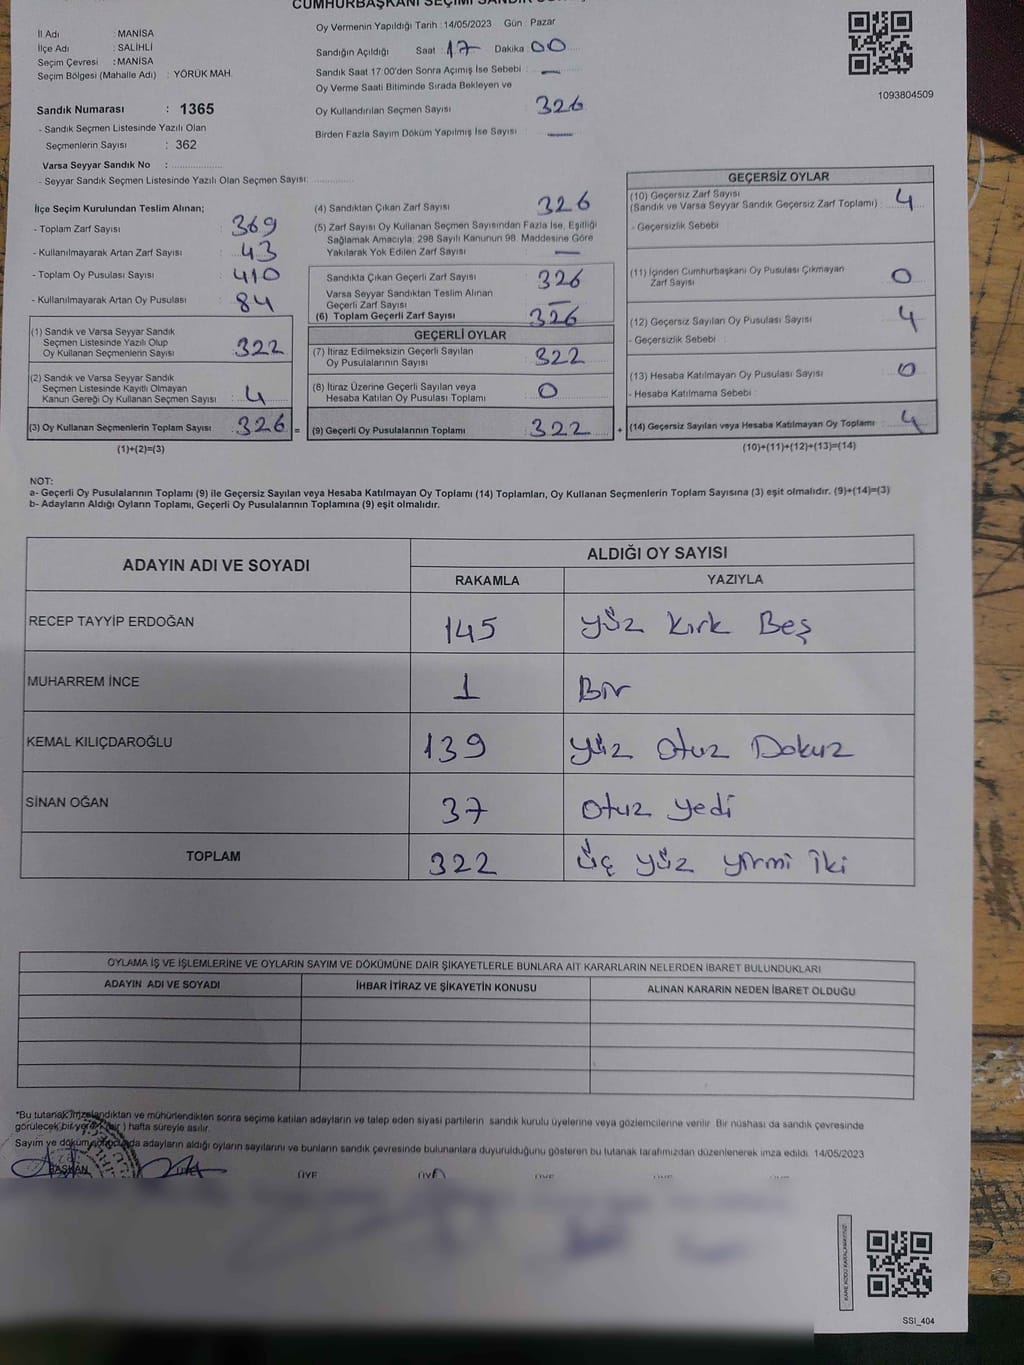 İl Adı : MANİSA
İlçe Adı : SALİHLİ
Seçim Çevresi : MANİSA
Seçim Bölgesi (Mahalle Adı) : YÖRÜK MAH.
Sandık Numarası : 1365
- Sandık Seçmen Listesinde Yazılı Olan
Seçmenlerin Sayısı : 362
Varsa Seyyar Sandık No :
- Seyyar Sandık Seçmen Listesinde Yazılı Olan Seçmen Sayısı:
Oy Vermenin Yapıldığı Tarih : 14/05/2023 Gün : Pazar
Sandığın Açıldığı Saat : 17 Dakika : 00
Sandık Saat 17:00'den Sonra Açımış İse Sebebi : —
Oy Verme Saati Bitiminde Sırada Bekleyen ve
Oy Kullandırılan Seçmen Sayısı 326
Birden Fazla Sayım Döküm Yapılmış İse Sayısı : —
1093804509
İlçe Seçim Kurulundan Teslim Alınan;
- Toplam Zarf Sayısı : 369
- Kullanılmayarak Artan Zarf Sayısı : 43
- Toplam Oy Pusulası Sayısı : 410
- Kullanılmayarak Artan Oy Pusulası : 84
(1) Sandık ve Varsa Seyyar Sandık
Seçmen Listesinde Yazılı Olup
Oy Kullanan Seçmenlerin Sayısı : 322
(2) Sandık ve Varsa Seyyar Sandık
Seçmen Listesinde Kayıtlı Olmayan
Kanun Gereği Oy Kullanan Seçmen Sayısı : 4
(3) Oy Kullanan Seçmenlerin Toplam Sayısı : 326 =
(1)+(2)=(3)
(4) Sandıktan Çıkan Zarf Sayısı : 326
(5) Zarf Sayısı Oy Kullanan Seçmen Sayısından Fazla İse, Eşitliği
Sağlamak Amacıyla, 298 Sayılı Kanunun 98. Maddesine Göre
Yakılarak Yok Edilen Zarf Sayısı : —
Sandıkta Çıkan Geçerli Zarf Sayısı : 326
Varsa Seyyar Sandıktan Teslim Alınan
Geçerli Zarf Sayısı : —
(6) Toplam Geçerli Zarf Sayısı : 326
GEÇERLİ OYLAR
(7) İtiraz Edilmeksizin Geçerli Sayılan
Oy Pusulalarının Sayısı : 322
(8) İtiraz Üzerine Geçerli Sayılan veya
Hesaba Katılan Oy Pusulası Toplamı : 0
(9) Geçerli Oy Pusulalarının Toplamı : 322 +
GEÇERSİZ OYLAR
(10) Geçersiz Zarf Sayısı
(Sandık ve Varsa Seyyar Sandık Geçersiz Zarf Toplamı) : 4
- Geçersizlik Sebebi :
(11) İçinden Cumhurbaşkanı Oy Pusulası Çıkmayan
Zarf Sayısı : 0
(12) Geçersiz Sayılan Oy Pusulası Sayısı : 4
- Geçersizlik Sebebi :
(13) Hesaba Katılmayan Oy Pusulası Sayısı : 0
- Hesaba Katılmama Sebebi :
(14) Geçersiz Sayılan veya Hesaba Katılmayan Oy Toplamı : 4
(10)+(11)+(12)+(13)=(14)
NOT:
a- Geçerli Oy Pusulalarının Toplamı (9) ile Geçersiz Sayılan veya Hesaba Katılmayan Oy Toplamı (14) Toplamları, Oy Kullanan Seçmenlerin Toplam Sayısına (3) eşit olmalıdır. (9)+(14)=(3)
b- Adayların Aldığı Oyların Toplamı, Geçerli Oy Pusulalarının Toplamına (9) eşit olmalıdır.
ADAYIN ADI VE SOYADI
ALDIĞI OY SAYISI
RAKAMLA YAZIYLA
RECEP TAYYİP ERDOĞAN 145 yüz kırk Beş
MUHARREM İNCE 1 Bir
KEMAL KILIÇDAROĞLU 139 yüz otuz Dokuz
SİNAN OĞAN 37 otuz yedi
TOPLAM 322 üç yüz yirmi iki
OYLAMA İŞ VE İŞLEMLERİNE VE OYLARIN SAYIM VE DÖKÜMÜNE DAİR ŞİKAYETLERLE BUNLARA AİT KARARLARIN NELERDEN İBARET BULUNDUKLARI
ADAYIN ADI VE SOYADI İHBAR İTİRAZ VE ŞİKAYETİN KONUSU ALINAN KARARIN NEDEN İBARET OLDUĞU
*Bu tutanak imzalandıktan ve mühürlendikten sonra seçime katılan adayların ve talep eden siyasi partilerin sandık kurulu üyelerine veya gözlemcilerine verilir. Bir nüshası da sandık çevresinde
görülecek bir yerde (bir) hafta süreyle asılır.
Sayım ve döküm sonucunda adayların aldığı oyların sayılarını ve bunların sandık çevresinde bulunanlara duyurulduğunu gösteren bu tutanak tarafımızdan düzenlenerek imza edildi. 14/05/2023
BAŞKAN ÜYE ÜYE ÜYE
SSI_404